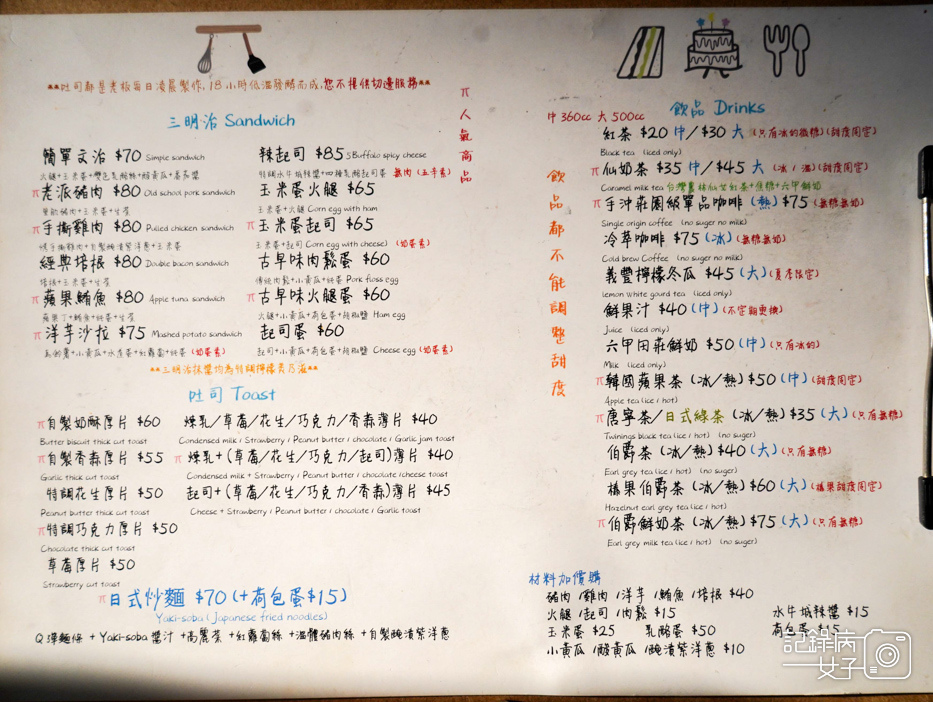 **吐司都是老板每日凌晨製作,18小時低溫發酵而成,恕不提供切邊服務**
三明治 Sandwich
簡單文治 $70 Simple sandwich
火腿+玉米蛋+雙色乳酪絲+酸黃瓜+蕃茄醬
π 老派豬肉 $80 Old school pork sandwich
里肌豬肉+玉米蛋+生菜
π 手撕雞肉 $80 Pulled chicken sandwich
嫩手撕雞肉+自製醃漬紫洋蔥+玉米蛋
經典培根 $80 Double bacon sandwich
培根+玉米蛋+生菜
π 蘋果鮪魚 $80 Apple tuna sandwich
蘋果丁+鮪魚+純蛋+生菜
π 洋芋沙拉 $75 Mashed potato sandwich
馬鈴薯+小黃瓜+水煮蛋+紅蘿蔔+純蛋 (奶蛋素)
辣起司 $85 5Buffalo spicy cheese
特調水牛城辣醬+四種乳酪起司蛋 無肉 (五辛素)
玉米蛋火腿 $65
玉米蛋+火腿 Corn egg with ham
π 玉米蛋起司 $65
玉米蛋+起司 Corn egg with cheese) (奶蛋素)
古早味肉鬆蛋 $60
傳統肉鬆+小黃瓜+純蛋 Pork floss egg
π 古早味火腿蛋 $60
火腿+小黃瓜+荷包蛋+胡椒鹽 Ham egg
起司蛋 $60
起司+小黃瓜+荷包蛋+胡椒鹽 Cheese egg (奶蛋素)
**三明治抹醬均為特調檸檬美乃滋**
π人氣商品
吐司 Toast
π自製奶酥厚片 $60
Butter biscuit thick cut toast
π自製香蒜厚片 $55
Garlic thick cut toast
特調花生厚片 $50
Peanut butter thick cut toast
π特調巧克力厚片 $50
Chocolate thick cut toast
草莓厚片 $50
Strawberry cut toast
煉乳/草莓/花生/巧克力/香蒜薄片 $40
Condensed milk / Strawberry / Peanut butter / chocolate / Garlic jam toast
π 煉乳+(草莓/花生/巧克力/起司)薄片 $40
Condensed milk + Strawberry / Peanut butter / chocolate /cheese toast
起司+(草莓/花生/巧克力/香蒜)薄片 $45
Cheese + Strawberry / Peanut butter / chocolate / Garlic toast
π日式炒麵 $70(+荷包蛋$15)
Yaki-soba ( Japanese fried noodles)
Q彈麵條 + Yaki-soba醬汁 +高麗菜 +紅蘿蔔絲 +溫體豬肉絲 +自製醃漬紫洋蔥
飲品 Drinks
中360cc 大 500cc
飲品都不能調整甜度
紅茶 $20 中/$30 大 (只有冰的微糖)(甜度固定)
Black tea (iced only)
π仙奶茶 $35 中/$45 大 (冰/溫)(甜度固定)
Caramel milk tea 台灣農林仙女紅茶+焦糖+六甲鮮奶
π手沖莊園級單品咖啡 (熱) $75 (無糖無奶)
Single origin coffee (no suger no milk)
冷萃咖啡 $75 (冰) (無糖無奶)
Cold brew Coffee (no suger no milk)
義豐檸檬冬瓜 $45 (大) (夏季限定)
lemon white gourd tea (iced only)
鮮果汁 $40 (中) (不定期更換)
Juice (iced only)
六甲田莊鮮奶 $50 (中) (只有冰的)
Milk (iced only)
π韓國蘋果茶 (冰/熱) $50 (中) (甜度固定)
Apple tea (ice / hot)
π唐寧茶/日式綠茶 (冰/熱) $35 (大) (只有無糖)
Twinings black tea (ice / hot) (no suger)
伯爵茶 (冰/熱) $40 (大) (只有無糖)
Earl grey tea (ice / hot) (no suger)
榛果伯爵茶 (冰/熱) $60 (大) (榛果甜度固定)
Hazelnut earl grey tea (ice / hot)
π伯爵鮮奶茶 (冰/熱) $75 (大) (只有無糖)
Earl grey milk tea (ice / hot) (no suger)
材料加價購
豬肉 /雞肉 /洋芋 /鮪魚 /培根 $40
火腿 /起司 /肉鬆 $15
玉米蛋 $25 乳酪蛋 $50
小黃瓜 /酸黃瓜 /醃漬紫洋蔥 $10
水牛城辣醬 $15
荷包蛋 $15
記錄病女子